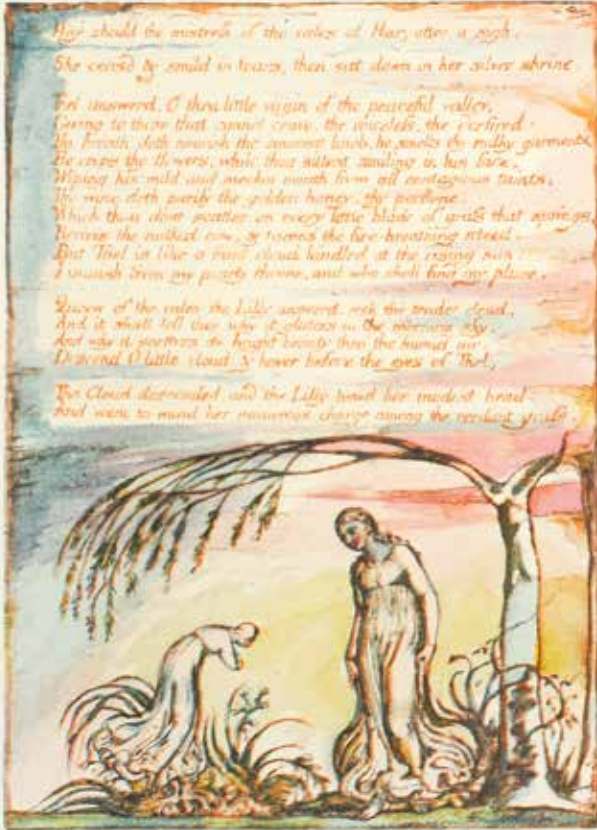 Why should the mistress of the vales of Har, utter a sigh.
She ceasd & smild in tears, then sat down in her silver shrine.
Thel answerd, O thou little virgin of the peaceful valley,
Giving to those that cannot crave, the voiceless, the o'ertired.
Thy breath doth nourish the innocent lamb, he smells thy milky garments,
He crops thy flowers, while thou sittest smiling in his face,
Wiping his mild and meekin mouth from all contagious taints.
Thy wine doth purify the golden honey, thy perfume,
Which thou dost scatter on every little blade of grass that springs
Revives the milked cow, & tames the fire-breathing steed.
But Thel is like a faint cloud kindled at the rising sun:
I vanish from my pearly throne, and who shall find my place.
Queen of the vales the Lilly answerd, ask the tender cloud,
And it shall tell thee why it glitters in the morning sky,
And why it scatters its bright beauty thro' the humid air.
Descend O little cloud & hover before the eyes of Thel.
The Cloud descended, and the Lilly bowd her modest head:
And went to mind her numerous charge among the verdant grass.